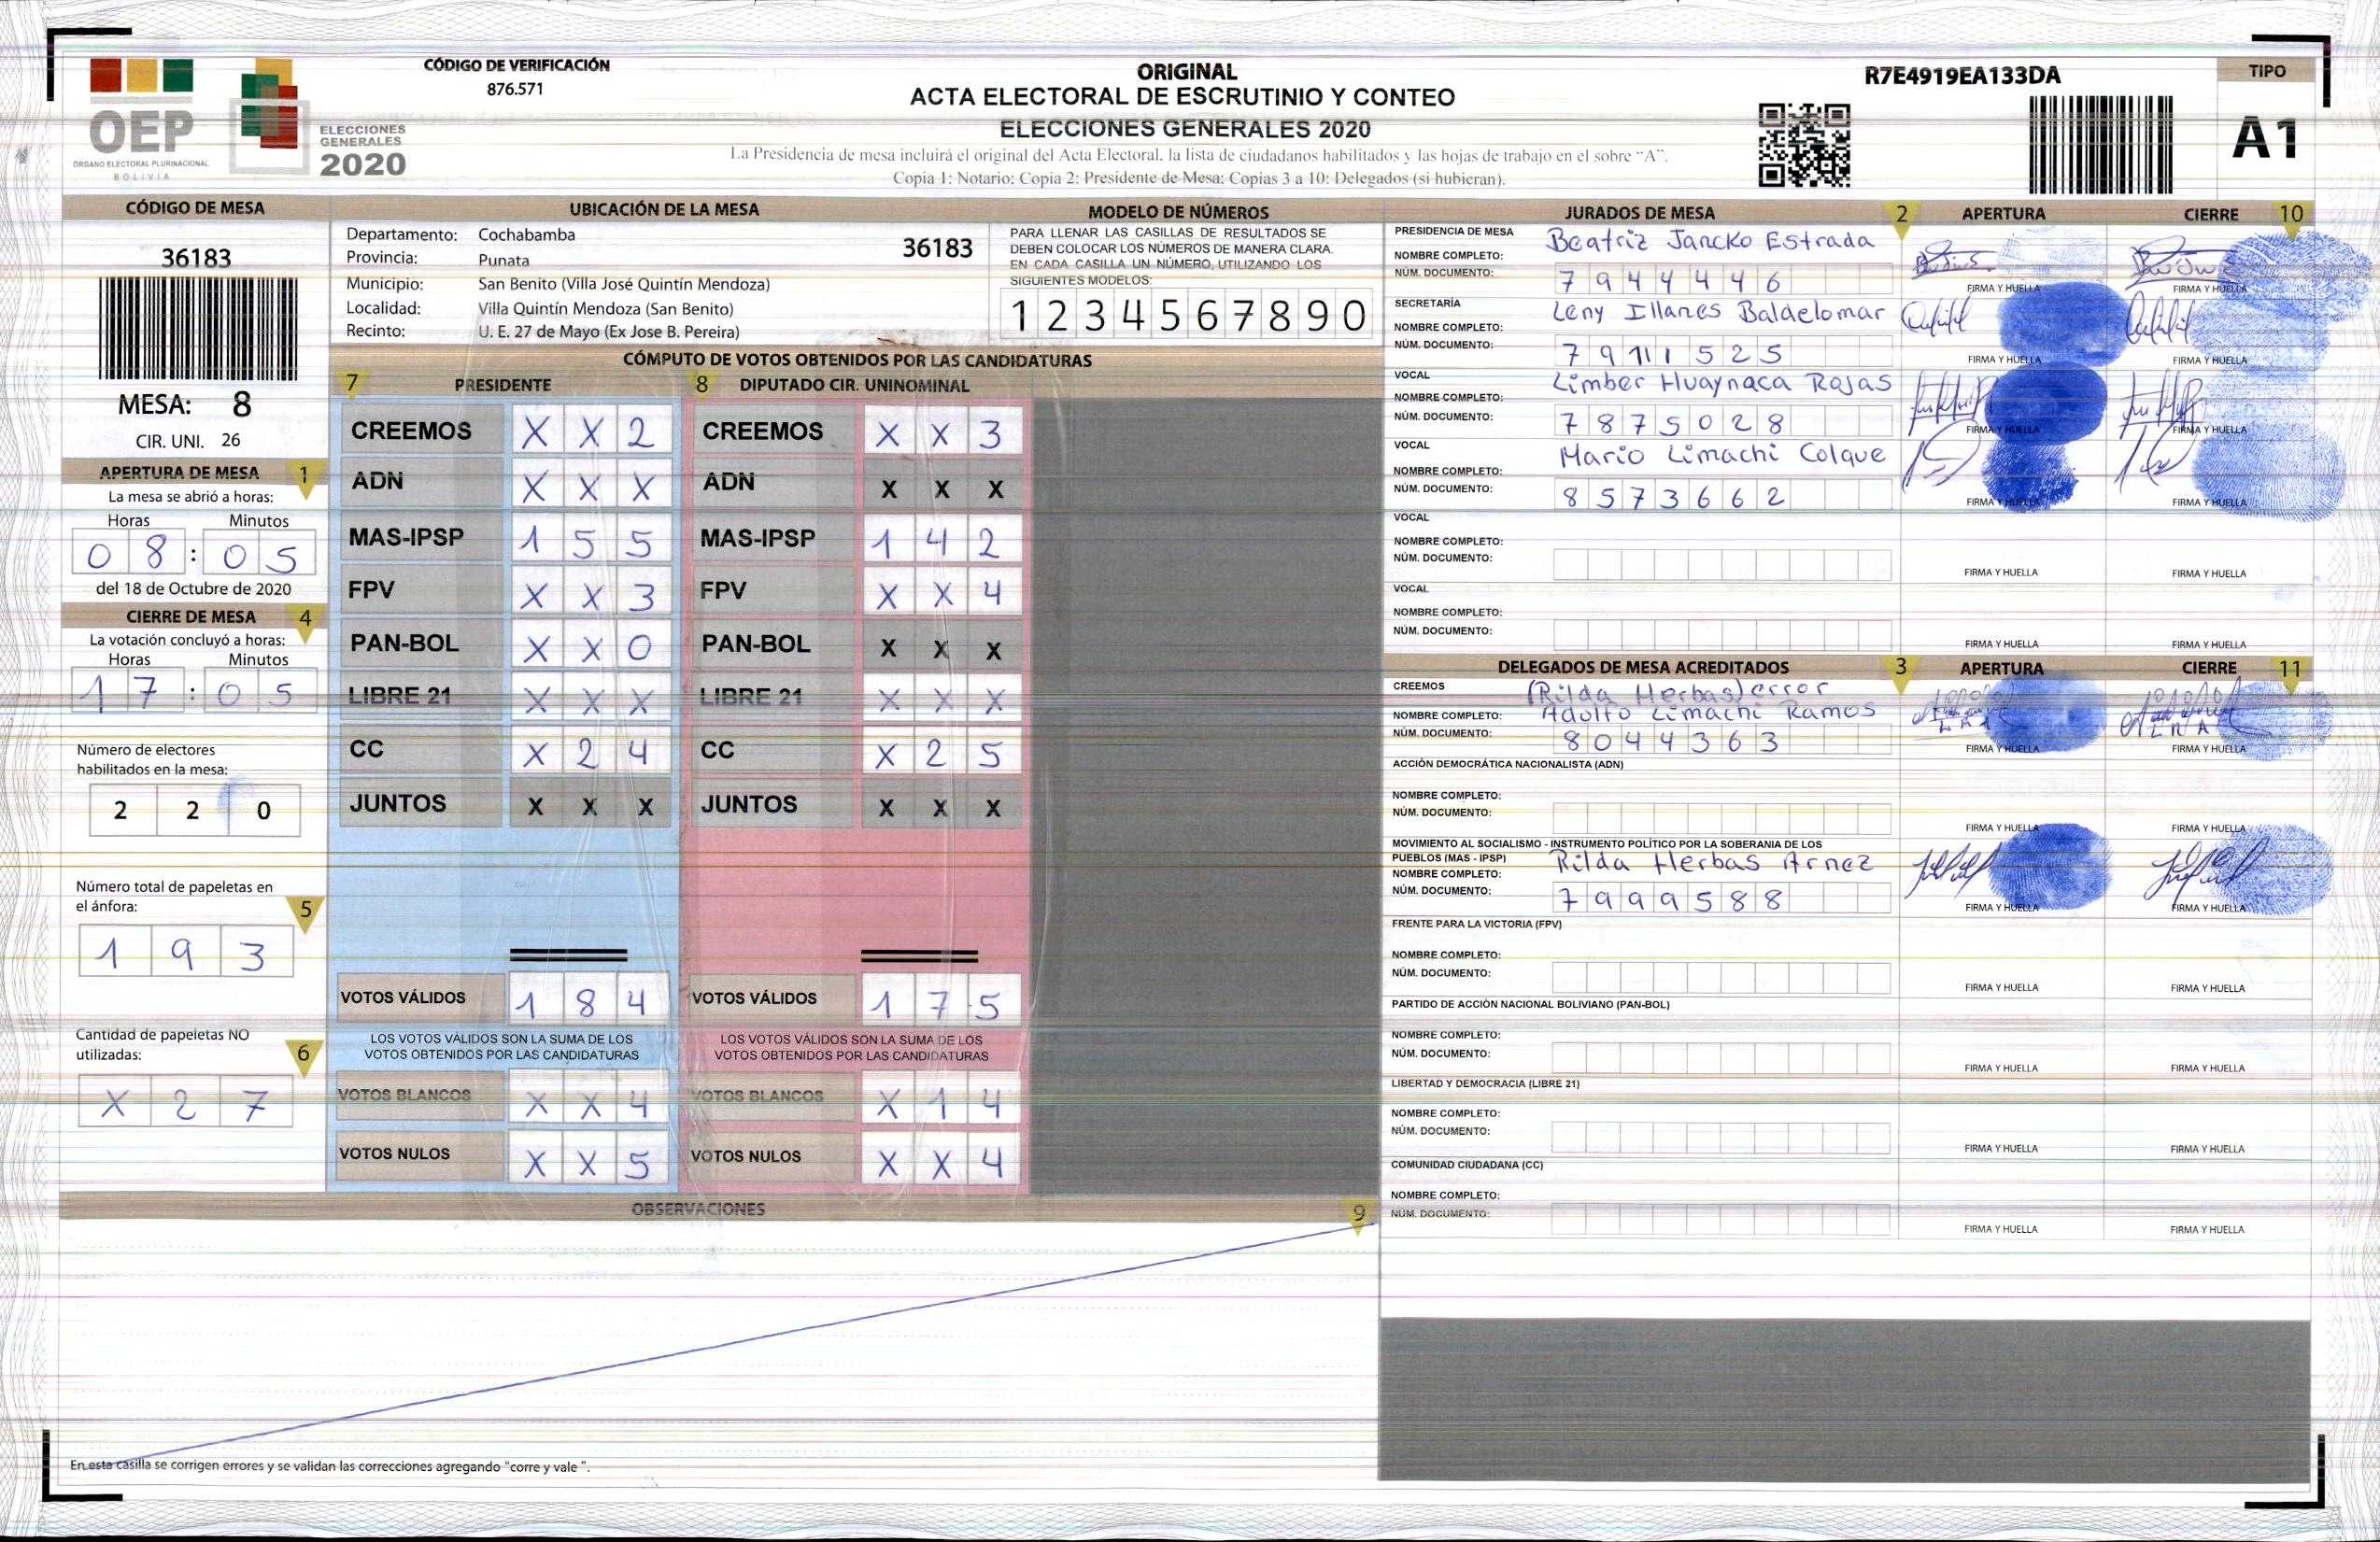 CÓDIGO DE VERIFICACIÓN
876.571
OEP
ÓRGANO ELECTORAL PLURINACIONAL
BOLIVIA
ELECCIONES
GENERALES
2020
ORIGINAL
ACTA ELECTORAL DE ESCRUTINIO Y CONTEO
ELECCIONES GENERALES 2020
La Presidencia de mesa incluirá el original del Acta Electoral, la lista de ciudadanos habilitados y las hojas de trabajo en el sobre "A".
Copia 1: Notario; Copia 2: Presidente de Mesa; Copias 3 a 10: Delegados (si hubieran).
R7E4919EA133DA
TIPO
A1
CÓDIGO DE MESA
36183
MESA: 8
CIR. UNI. 26
APERTURA DE MESA 1
La mesa se abrió a horas:
Horas Minutos
08:05
del 18 de Octubre de 2020
CIERRE DE MESA 4
La votación concluyó a horas:
Horas Minutos
17:05
Número de electores
habilitados en la mesa:
2 2 0
Número total de papeletas en
el ánfora: 5
1 9 3
Cantidad de papeletas NO
utilizadas: 6
X 2 7
UBICACIÓN DE LA MESA
Departamento: Cochabamba
Provincia: Punata
Municipio: San Benito (Villa José Quintín Mendoza)
Localidad: Villa Quintín Mendoza (San Benito)
Recinto: U. E. 27 de Mayo (Ex Jose B. Pereira)
36183
MODELO DE NÚMEROS
PARA LLENAR LAS CASILLAS DE RESULTADOS SE
DEBEN COLOCAR LOS NÚMEROS DE MANERA CLARA.
EN CADA CASILLA UN NÚMERO, UTILIZANDO LOS
SIGUIENTES MODELOS:
1 2 3 4 5 6 7 8 9 0
CÓMPUTO DE VOTOS OBTENIDOS POR LAS CANDIDATURAS
7 PRESIDENTE 8 DIPUTADO CIR. UNINOMINAL
CREEMOS X X 2 CREEMOS X X 3
ADN X X X ADN X X X
MAS-IPSP 1 5 5 MAS-IPSP 1 4 2
FPV X X 3 FPV X X 4
PAN-BOL X X 0 PAN-BOL X X X
LIBRE 21 X X X LIBRE 21 X X X
CC X 2 4 CC X 2 5
JUNTOS X X X JUNTOS X X X
VOTOS VÁLIDOS 1 8 4 VOTOS VÁLIDOS 1 7 5
LOS VOTOS VÁLIDOS SON LA SUMA DE LOS
VOTOS OBTENIDOS POR LAS CANDIDATURAS
LOS VOTOS VÁLIDOS SON LA SUMA DE LOS
VOTOS OBTENIDOS POR LAS CANDIDATURAS
VOTOS BLANCOS X X 4 VOTOS BLANCOS X 1 4
VOTOS NULOS X X 5 VOTOS NULOS X X 4
OBSERVACIONES 9
En esta casilla se corrigen errores y se validan las correcciones agregando "corre y vale ".
JURADOS DE MESA 2 APERTURA CIERRE 10
PRESIDENCIA DE MESA
NOMBRE COMPLETO: Beatriz Jancko Estrada
NÚM. DOCUMENTO: 7944446
FIRMA Y HUELLA FIRMA Y HUELLA
SECRETARÍA
NOMBRE COMPLETO: Leny Illanes Baldelomar
NÚM. DOCUMENTO: 7911525
FIRMA Y HUELLA FIRMA Y HUELLA
VOCAL
NOMBRE COMPLETO: Limber Huaynaca Rojas
NÚM. DOCUMENTO: 7875028
FIRMA Y HUELLA FIRMA Y HUELLA
VOCAL
NOMBRE COMPLETO: Mario Limachi Colque
NÚM. DOCUMENTO: 8573662
FIRMA Y HUELLA FIRMA Y HUELLA
VOCAL
NOMBRE COMPLETO:
NÚM. DOCUMENTO:
FIRMA Y HUELLA FIRMA Y HUELLA
VOCAL
NOMBRE COMPLETO:
NÚM. DOCUMENTO:
FIRMA Y HUELLA FIRMA Y HUELLA
DELEGADOS DE MESA ACREDITADOS 3 APERTURA CIERRE 11
CREEMOS (Rilda Herbas) error
NOMBRE COMPLETO: Adolfo Limachi Ramos
NÚM. DOCUMENTO: 8044363
FIRMA Y HUELLA FIRMA Y HUELLA
ACCIÓN DEMOCRÁTICA NACIONALISTA (ADN)
NOMBRE COMPLETO:
NÚM. DOCUMENTO:
FIRMA Y HUELLA FIRMA Y HUELLA
MOVIMIENTO AL SOCIALISMO - INSTRUMENTO POLÍTICO POR LA SOBERANIA DE LOS
PUEBLOS (MAS - IPSP)
NOMBRE COMPLETO: Rilda Herbas Arnez
NÚM. DOCUMENTO: 7999588
FIRMA Y HUELLA FIRMA Y HUELLA
FRENTE PARA LA VICTORIA (FPV)
NOMBRE COMPLETO:
NÚM. DOCUMENTO:
FIRMA Y HUELLA FIRMA Y HUELLA
PARTIDO DE ACCIÓN NACIONAL BOLIVIANO (PAN-BOL)
NOMBRE COMPLETO:
NÚM. DOCUMENTO:
FIRMA Y HUELLA FIRMA Y HUELLA
LIBERTAD Y DEMOCRACIA (LIBRE 21)
NOMBRE COMPLETO:
NÚM. DOCUMENTO:
FIRMA Y HUELLA FIRMA Y HUELLA
COMUNIDAD CIUDADANA (CC)
NOMBRE COMPLETO:
NÚM. DOCUMENTO:
FIRMA Y HUELLA FIRMA Y HUELLA